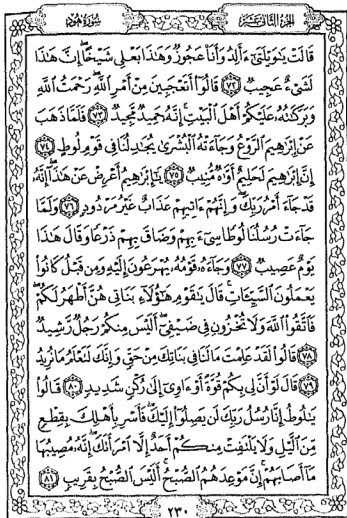 الجزء الثاني عشر
سورة هود
قَالَتْ يَٰوَيْلَتَىٰٓ ءَأَلِدُ وَأَنَا۠ عَجُوزٌ وَهَٰذَا بَعْلِى شَيْخًا إِنَّ هَٰذَا
لَشَىْءٌ عَجِيبٌ ٧٢ قَالُوٓا۟ أَتَعْجَبِينَ مِنْ أَمْرِ ٱللَّهِ رَحْمَتُ ٱللَّهِ
وَبَرَكَٰتُهُۥ عَلَيْكُمْ أَهْلَ ٱلْبَيْتِ إِنَّهُۥ حَمِيدٌ مَّجِيدٌ ٧٣ فَلَمَّا ذَهَبَ
عَنْ إِبْرَٰهِيمَ ٱلرَّوْعُ وَجَآءَتْهُ ٱلْبُشْرَىٰ يُجَٰدِلُنَا فِى قَوْمِ لُوطٍ ٧٤
إِنَّ إِبْرَٰهِيمَ لَحَلِيمٌ أَوَّٰهٌ مُّنِيبٌ ٧٥ يَٰٓإِبْرَٰهِيمُ أَعْرِضْ عَنْ هَٰذَآ إِنَّهُۥ
قَدْ جَآءَ أَمْرُ رَبِّكَ وَإِنَّهُمْ ءَاتِيهِمْ عَذَابٌ غَيْرُ مَرْدُودٍ ٧٦ وَلَمَّا
جَآءَتْ رُسُلُنَا لُوطًا سِىٓءَ بِهِمْ وَضَاقَ بِهِمْ ذَرْعًا وَقَالَ هَٰذَا
يَوْمٌ عَصِيبٌ ٧٧ وَجَآءَهُۥ قَوْمُهُۥ يُهْرَعُونَ إِلَيْهِ وَمِن قَبْلُ كَانُوا۟
يَعْمَلُونَ ٱلسَّيِّـَٔاتِ قَالَ يَٰقَوْمِ هَٰٓؤُلَآءِ بَنَاتِى هُنَّ أَطْهَرُ لَكُمْ
فَٱتَّقُوا۟ ٱللَّهَ وَلَا تُخْزُونِ فِى ضَيْفِىٓ أَلَيْسَ مِنكُمْ رَجُلٌ رَّشِيدٌ
٧٨ قَالُوا۟ لَقَدْ عَلِمْتَ مَا لَنَا فِى بَنَاتِكَ مِنْ حَقٍّ وَإِنَّكَ لَتَعْلَمُ مَا نُرِيدُ
٧٩ قَالَ لَوْ أَنَّ لِى بِكُمْ قُوَّةً أَوْ ءَاوِىٓ إِلَىٰ رُكْنٍ شَدِيدٍ ٨٠ قَالُوا۟
يَٰلُوطُ إِنَّا رُسُلُ رَبِّكَ لَن يَصِلُوٓا۟ إِلَيْكَ فَأَسْرِ بِأَهْلِكَ بِقِطْعٍ
مِّنَ ٱلَّيْلِ وَلَا يَلْتَفِتْ مِنكُمْ أَحَدٌ إِلَّا ٱمْرَأَتَكَ إِنَّهُۥ مُصِيبُهَا
مَآ أَصَابَهُمْ إِنَّ مَوْعِدَهُمُ ٱلصُّبْحُ أَلَيْسَ ٱلصُّبْحُ بِقَرِيبٍ ٨١
٢٣٠